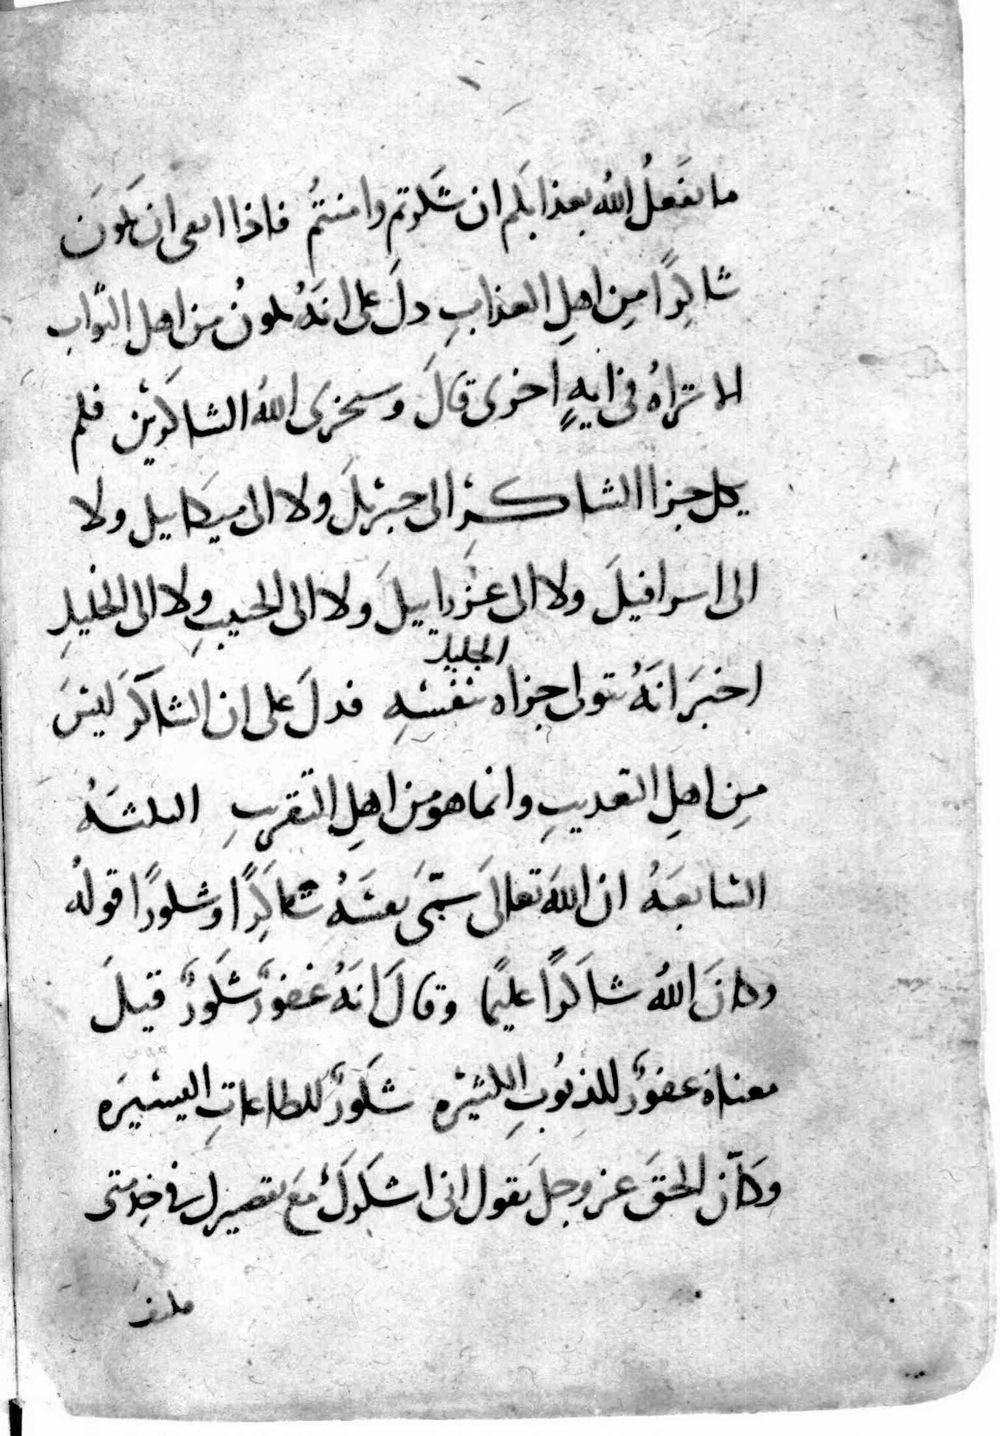 ما يَفعَلُ اللهُ بعذابكم ان شكرتم وامنتُم فاذا انتفى ان يكونَ
شاكرًا مِن اهلِ العذابِ دلَ على انهُ يكونُ من اهل الثواب
الا تراهُ فى ايةٍ اخرى قالَ وسيجزى اللهُ الشاكرين فلم
يكل جزا الشاكر الى جبريلَ ولا الى ميكاييل ولا
الى اسرافيلَ ولا الى عزراييلَ ولا الى الحبيبِ ولا الى الخليلِ
الجليل
اخبَرَ انهُ يتولى جزاه بنفسِهِ فدلَ على ان الشاكرَ ليسَ
مِن اهلِ التعذيبِ وانما هو من اهلِ التقريبِ
السابعَهُ ان اللهَ تعالىَ سمّى نفسَهُ شاكرًا وشكورًا قولهُ
وكانَ اللهُ شاكرًا عليمًا وقالَ انهُ غفورٌ شكورٌ قيلَ
معناه غفورٌ للذنوبِ الكثيره شكورٌ للطاعاتِ اليسيرَه
وكانّ الحقَ عز وجلَ يقول انى اشكركَ معَ تقصيرك فى خِدمتى